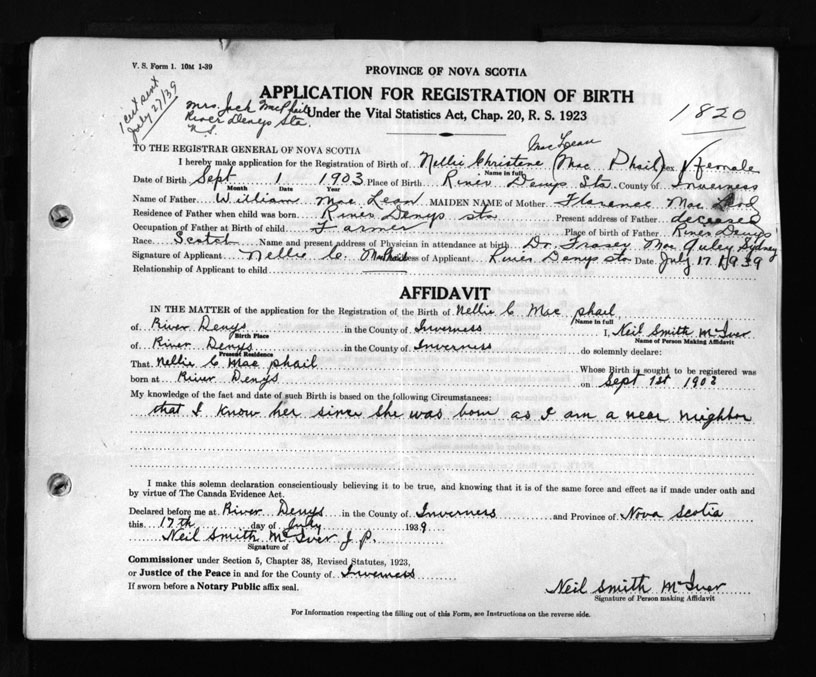 V. S. Form 1. 10M 1-39
1 cert sent
July 27/39
Mrs. Jack MacPhail
River Denys Sta.
N.S.
PROVINCE OF NOVA SCOTIA
APPLICATION FOR REGISTRATION OF BIRTH
Under the Vital Statistics Act, Chap. 20, R. S. 1923
1820
TO THE REGISTRAR GENERAL OF NOVA SCOTIA
MacLean
I hereby make application for the Registration of Birth of Nellie Christene (Mac Phail) sex female
Name in full
Date of Birth Sept 1 1903 Place of Birth River Denys Sta. County of Inverness
Month Date Year
Name of Father William Mac Lean MAIDEN NAME of Mother Florence Mac Leod
Residence of Father when child was born River Denys sta Present address of Father deceased
Occupation of Father at Birth of child Farmer Place of birth of Father River Denys
Race Scotch Name and present address of Physician in attendance at birth Dr. Mac Auley Sydney
Signature of Applicant Nellie C. MacPhail Address of Applicant River Denys sta Date July 17 1939
Relationship of Applicant to child
AFFIDAVIT
IN THE MATTER of the application for the Registration of the Birth of Nellie C Mac phail
Name in full
of River Denys in the County of Inverness I, Neil Smith McIver
Birth Place Name of Person Making Affidavit
of River Denys in the County of Inverness do solemnly declare:
Present Residence
That Nellie C Mac phail Whose Birth is sought to be registered was
born at River Denys on Sept 1st 1903
My knowledge of the fact and date of such Birth is based on the following Circumstances:
that I know her since she was born as I am a near neighbor
I make this solemn declaration conscientiously believing it to be true, and knowing that it is of the same force and effect as if made under oath and
by virtue of The Canada Evidence Act.
Declared before me at River Denys in the County of Inverness and Province of Nova Scotia
this 17th day of July 1939
Neil Smith McIver J. P.
Signature of
Commissioner under Section 5, Chapter 38, Revised Statutes, 1923,
or Justice of the Peace in and for the County of Inverness
If sworn before a Notary Public affix seal.
Neil Smith McIver
Signature of Person making Affidavit
For Information respecting the filling out of this Form, see Instructions on the reverse side.